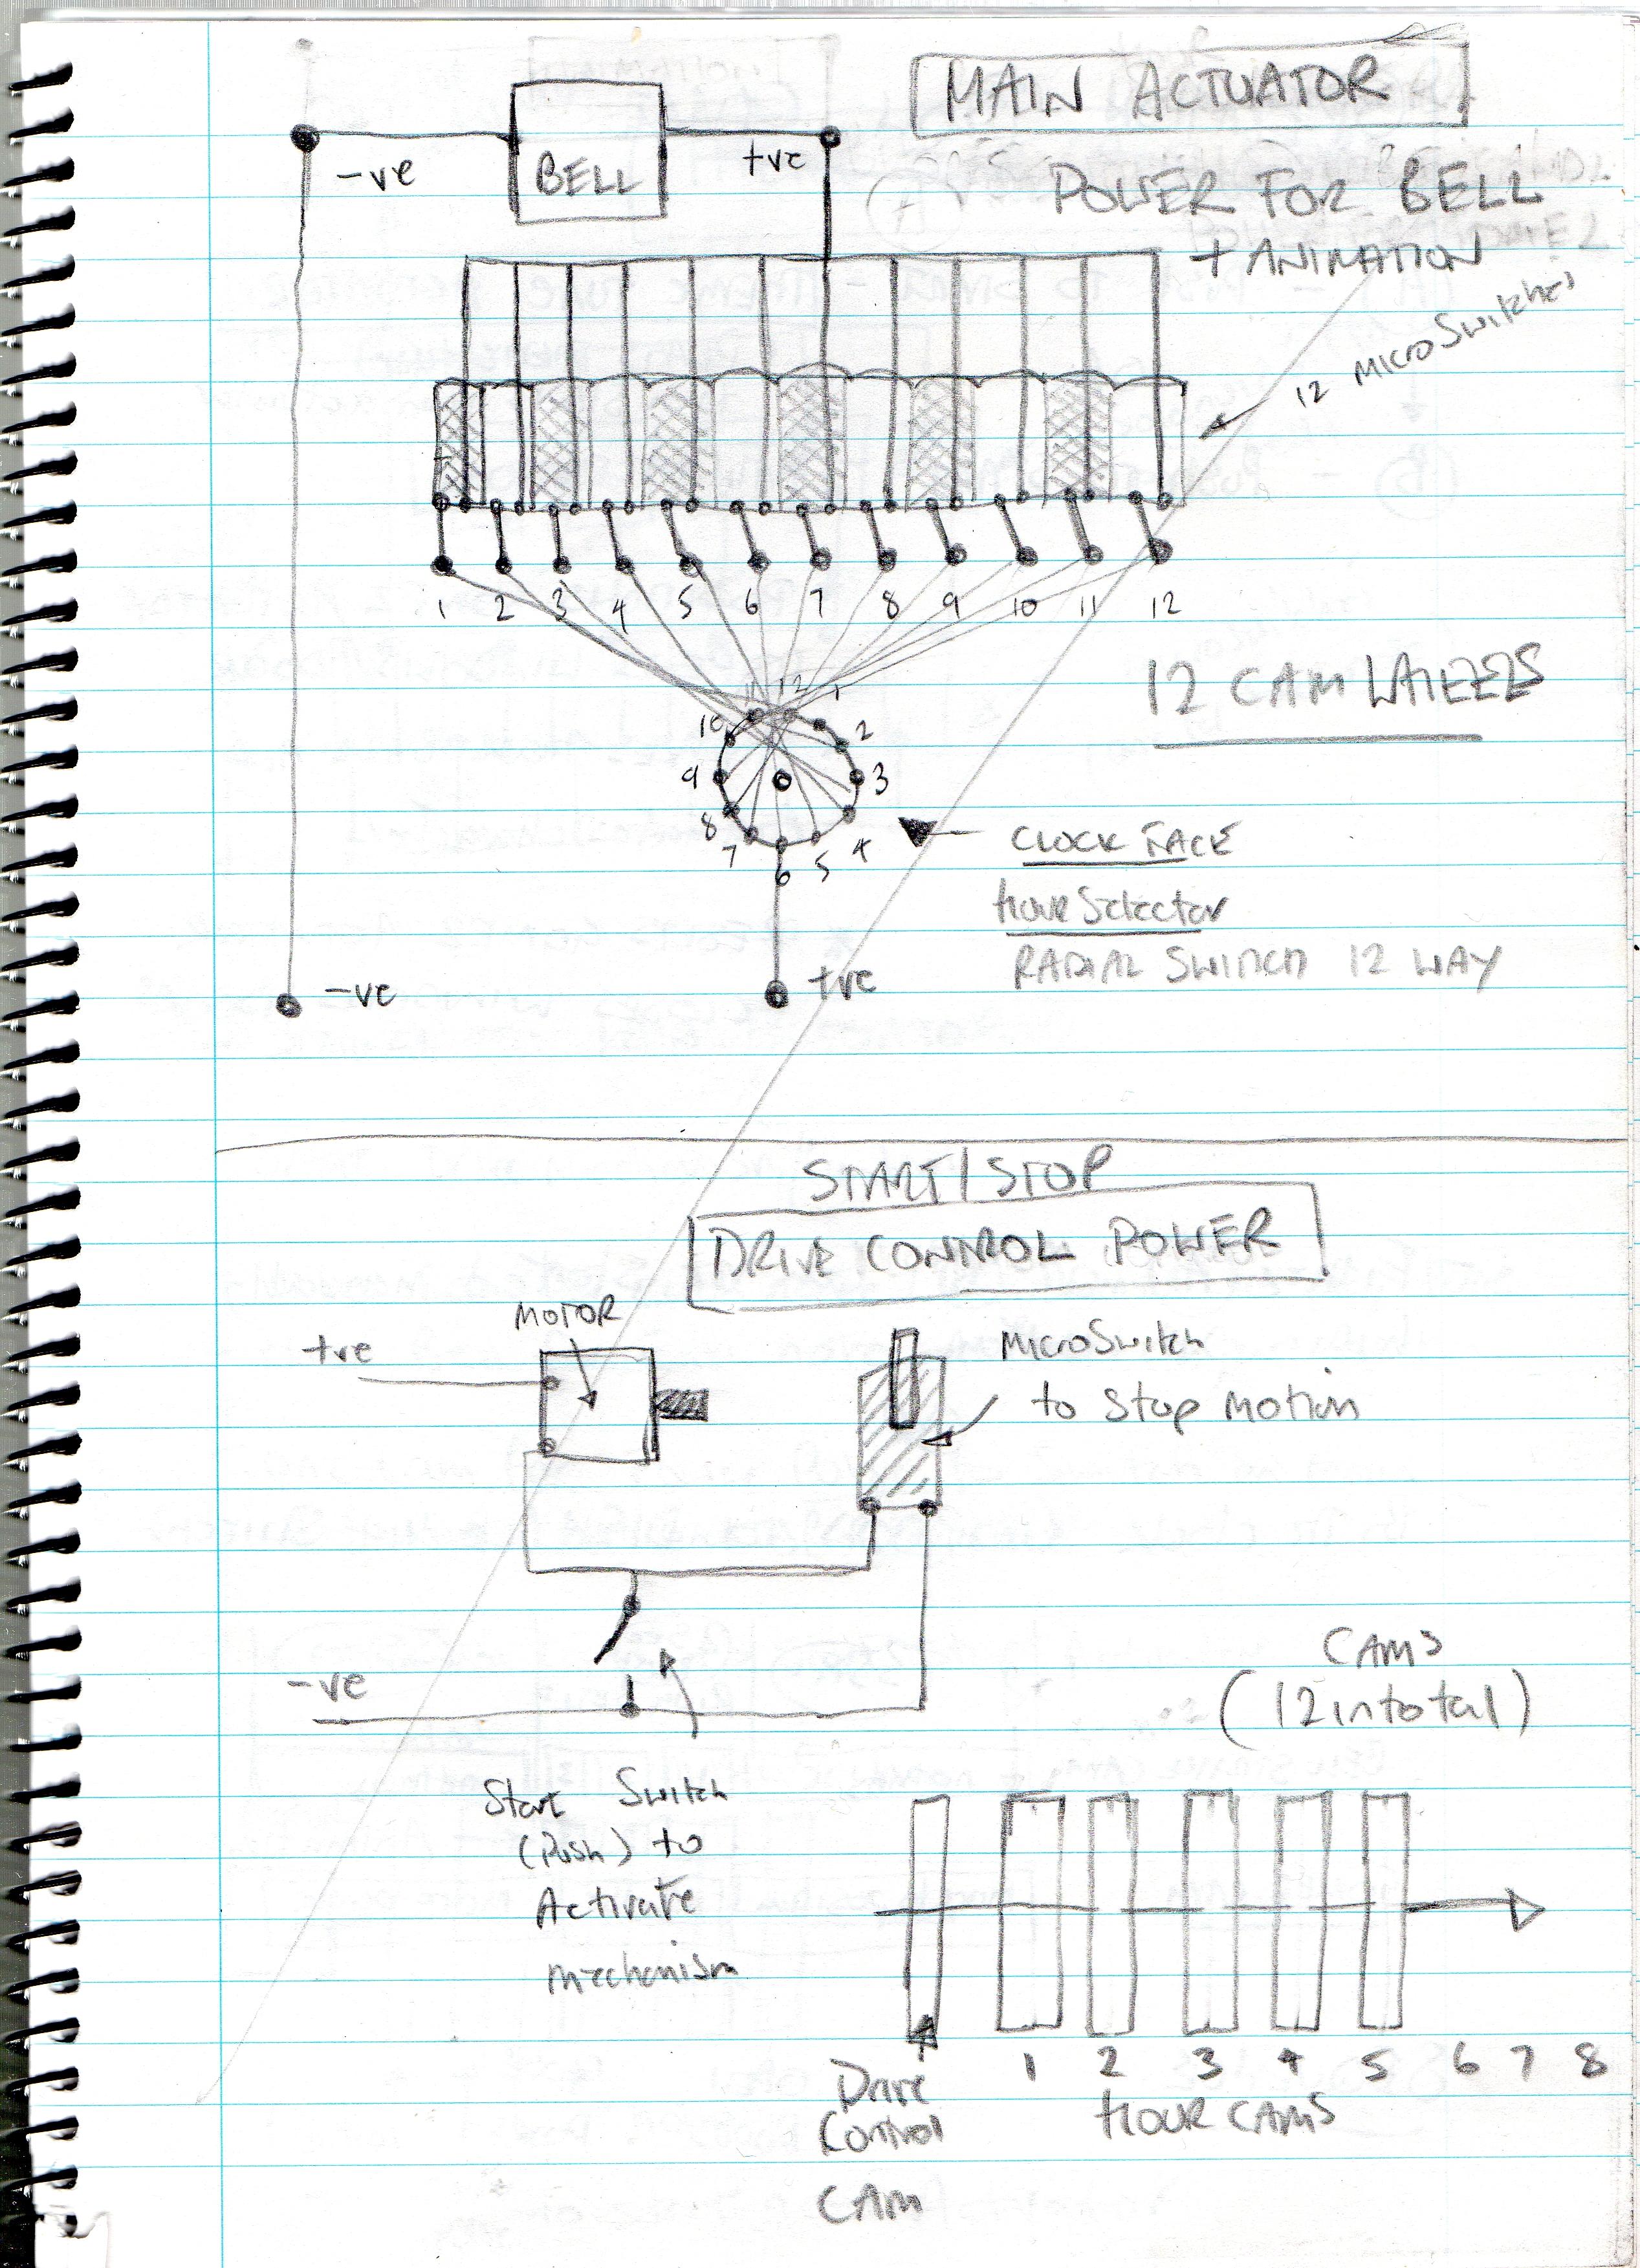 MAIN ACTUATOR
-ve
BELL
+ve
POWER FOR BELL
+ ANIMATION
12 MICROSwitches
1 2 3 4 5 6 7 8 9 10 11 12
12 CAM WHEELS
11 12 1
10 2
9 3
8 4
7 6 5
CLOCK FACE
HOUR Selector
RADIAL SWITCH 12 WAY
-ve
+ve
START / STOP
DRIVE CONTROL POWER
MOTOR
+ve
MICROSwitch
to Stop Motion
-ve
Start Switch
(Push) to
Activate
mechanism
CAMS
(12 in total)
1 2 3 4 5 6 7 8
HOUR CAMS
Drive
Control
CAM